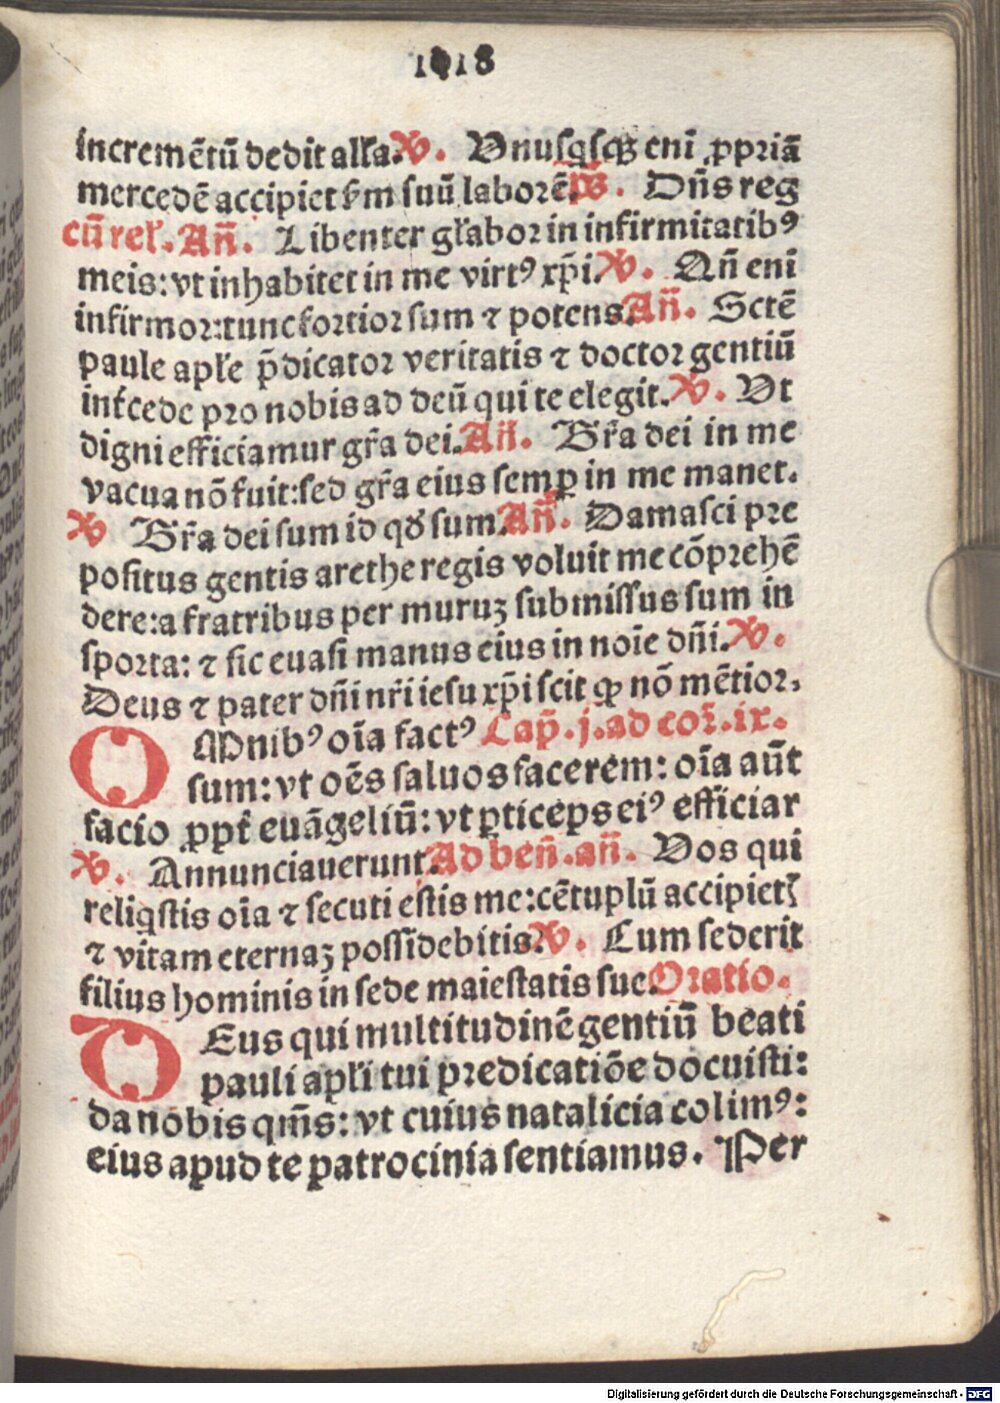 1018
incremētū dedit alľa. ꝟ. Vnuſqſqꝫ enī ꝓpriā
mercedē accipiet ẜm ſuū laborē. p̄s. Dn̄s reg
cū reł. An̄. Libenter gľabor in infirmitatibꝰ
meis: vt inhabitet in me virtꝰ xp̄i. ꝟ. Qn̄ enī
infirmor: tunc fortior ſum ⁊ potens. An̄. Sctē
paule apľe p̄dicator veritatis ⁊ doctor gentiū
inťcede pro nobis ad deū qui te elegit. ꝟ. Ut
digni efficiamur gr̄a dei. An̄. Gr̄a dei in me
vacua nō fuit: ſed gr̄a eius ſemꝑ in me manet.
ꝟ Gr̄a dei ſum id qđ ſum. An̄. Damaſci pre
poſitus gentis arethe regis voluit me cōprehē
dere: a fratribus per muruꝫ ſubmiſſus ſum in
ſporta: ⁊ ſic euaſi manus eius in noīe dn̄i. ꝟ.
Deus ⁊ pater dn̄i nr̄i ieſu xp̄i ſcit ꝙ nō mētior.
OMnibꝰ oīa factꝰ Cap̄. j. ad cor̄. ix.
ſum: vt oēs ſaluos facerem: oīa aūt
facio ꝓpť euāgeliū: vt ꝑticeps eiꝰ efficiar
ꝟ. Annunciauerunt. Ad ben̄. an̄. Vos qui
reliqſtis oīa ⁊ ſecuti eſtis me: cētuplū accipietꝭ
⁊ vitam eternaꝫ poſſidebitis. ꝟ. Cum ſederit
filius hominis in ſede maieſtatis ſue. Oratio.
DEus qui multitudinē gentiū beati
pauli apľi tui predicatiōe docuiſti:
da nobis qm̄s: vt cuius natalicia colimꝰ:
eius apud te patrocinia ſentiamus. Per
Digitalisierung gefördert durch die Deutsche Forschungsgemeinschaft - DFG